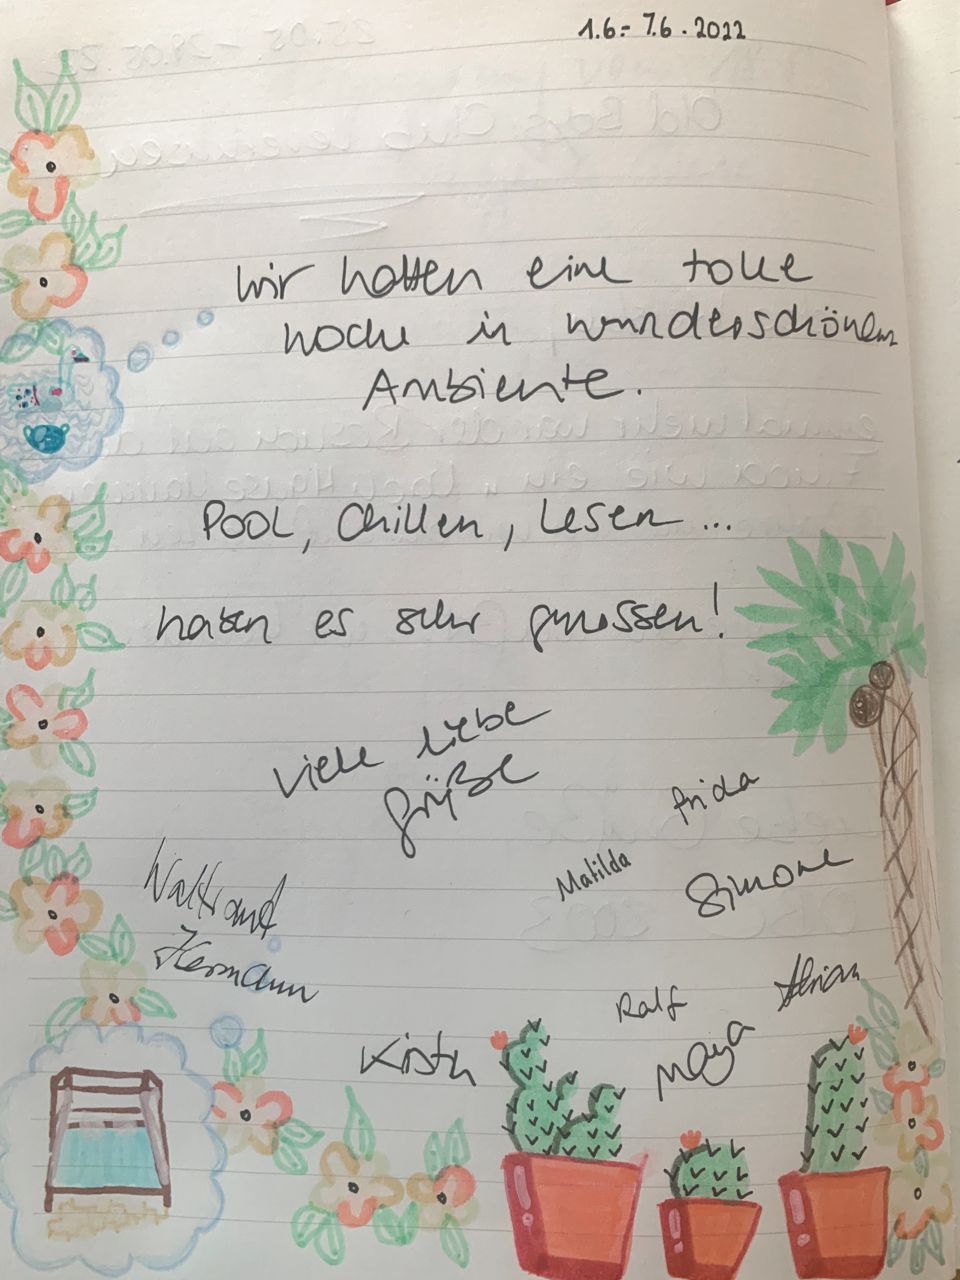 1.6 - 7.6.2022
Wir hatten eine tolle
Woche in wunderschönem
Ambiente.
Pool, Chillen, Lesen ...
haben es sehr genossen!
Viele liebe
Grüße
Frida
Matilda
Simone
Waltraud
Hermann
Adrian
Ralf
Maya
Kirstin